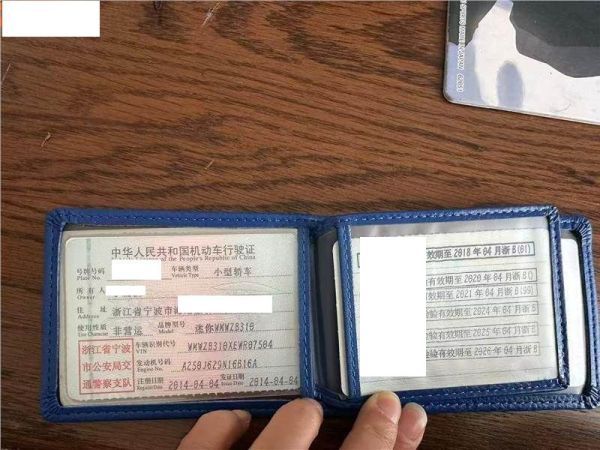 中华人民共和国机动车行驶证
of the People's Republic of China
号牌号码
Plate No.
车辆类型
Vehicle Type
小型轿车
所有人
Owner
住址
Address
浙江省宁波市
使用性质
Use Character
非营运
品牌型号
Model
迷你WMWZB310
浙江省宁波市公安局交通警察支队
车辆识别代号
VIN
发动机号码
Engine No.
注册日期
Register Date
2014-04-04
发证日期
Issue Date
2014-04-04
效期至2018年04月浙B(01)
有效期至2020年04月浙B()
有效期至2021年04月浙B(99)
检验有效期至2024年04月浙B
检验有效期至2025年04月浙B
检验有效期至2026年04月浙B